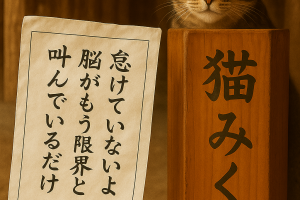 怠けていないよ
脳がもう限界と
叫んでいるだけ
猫みく